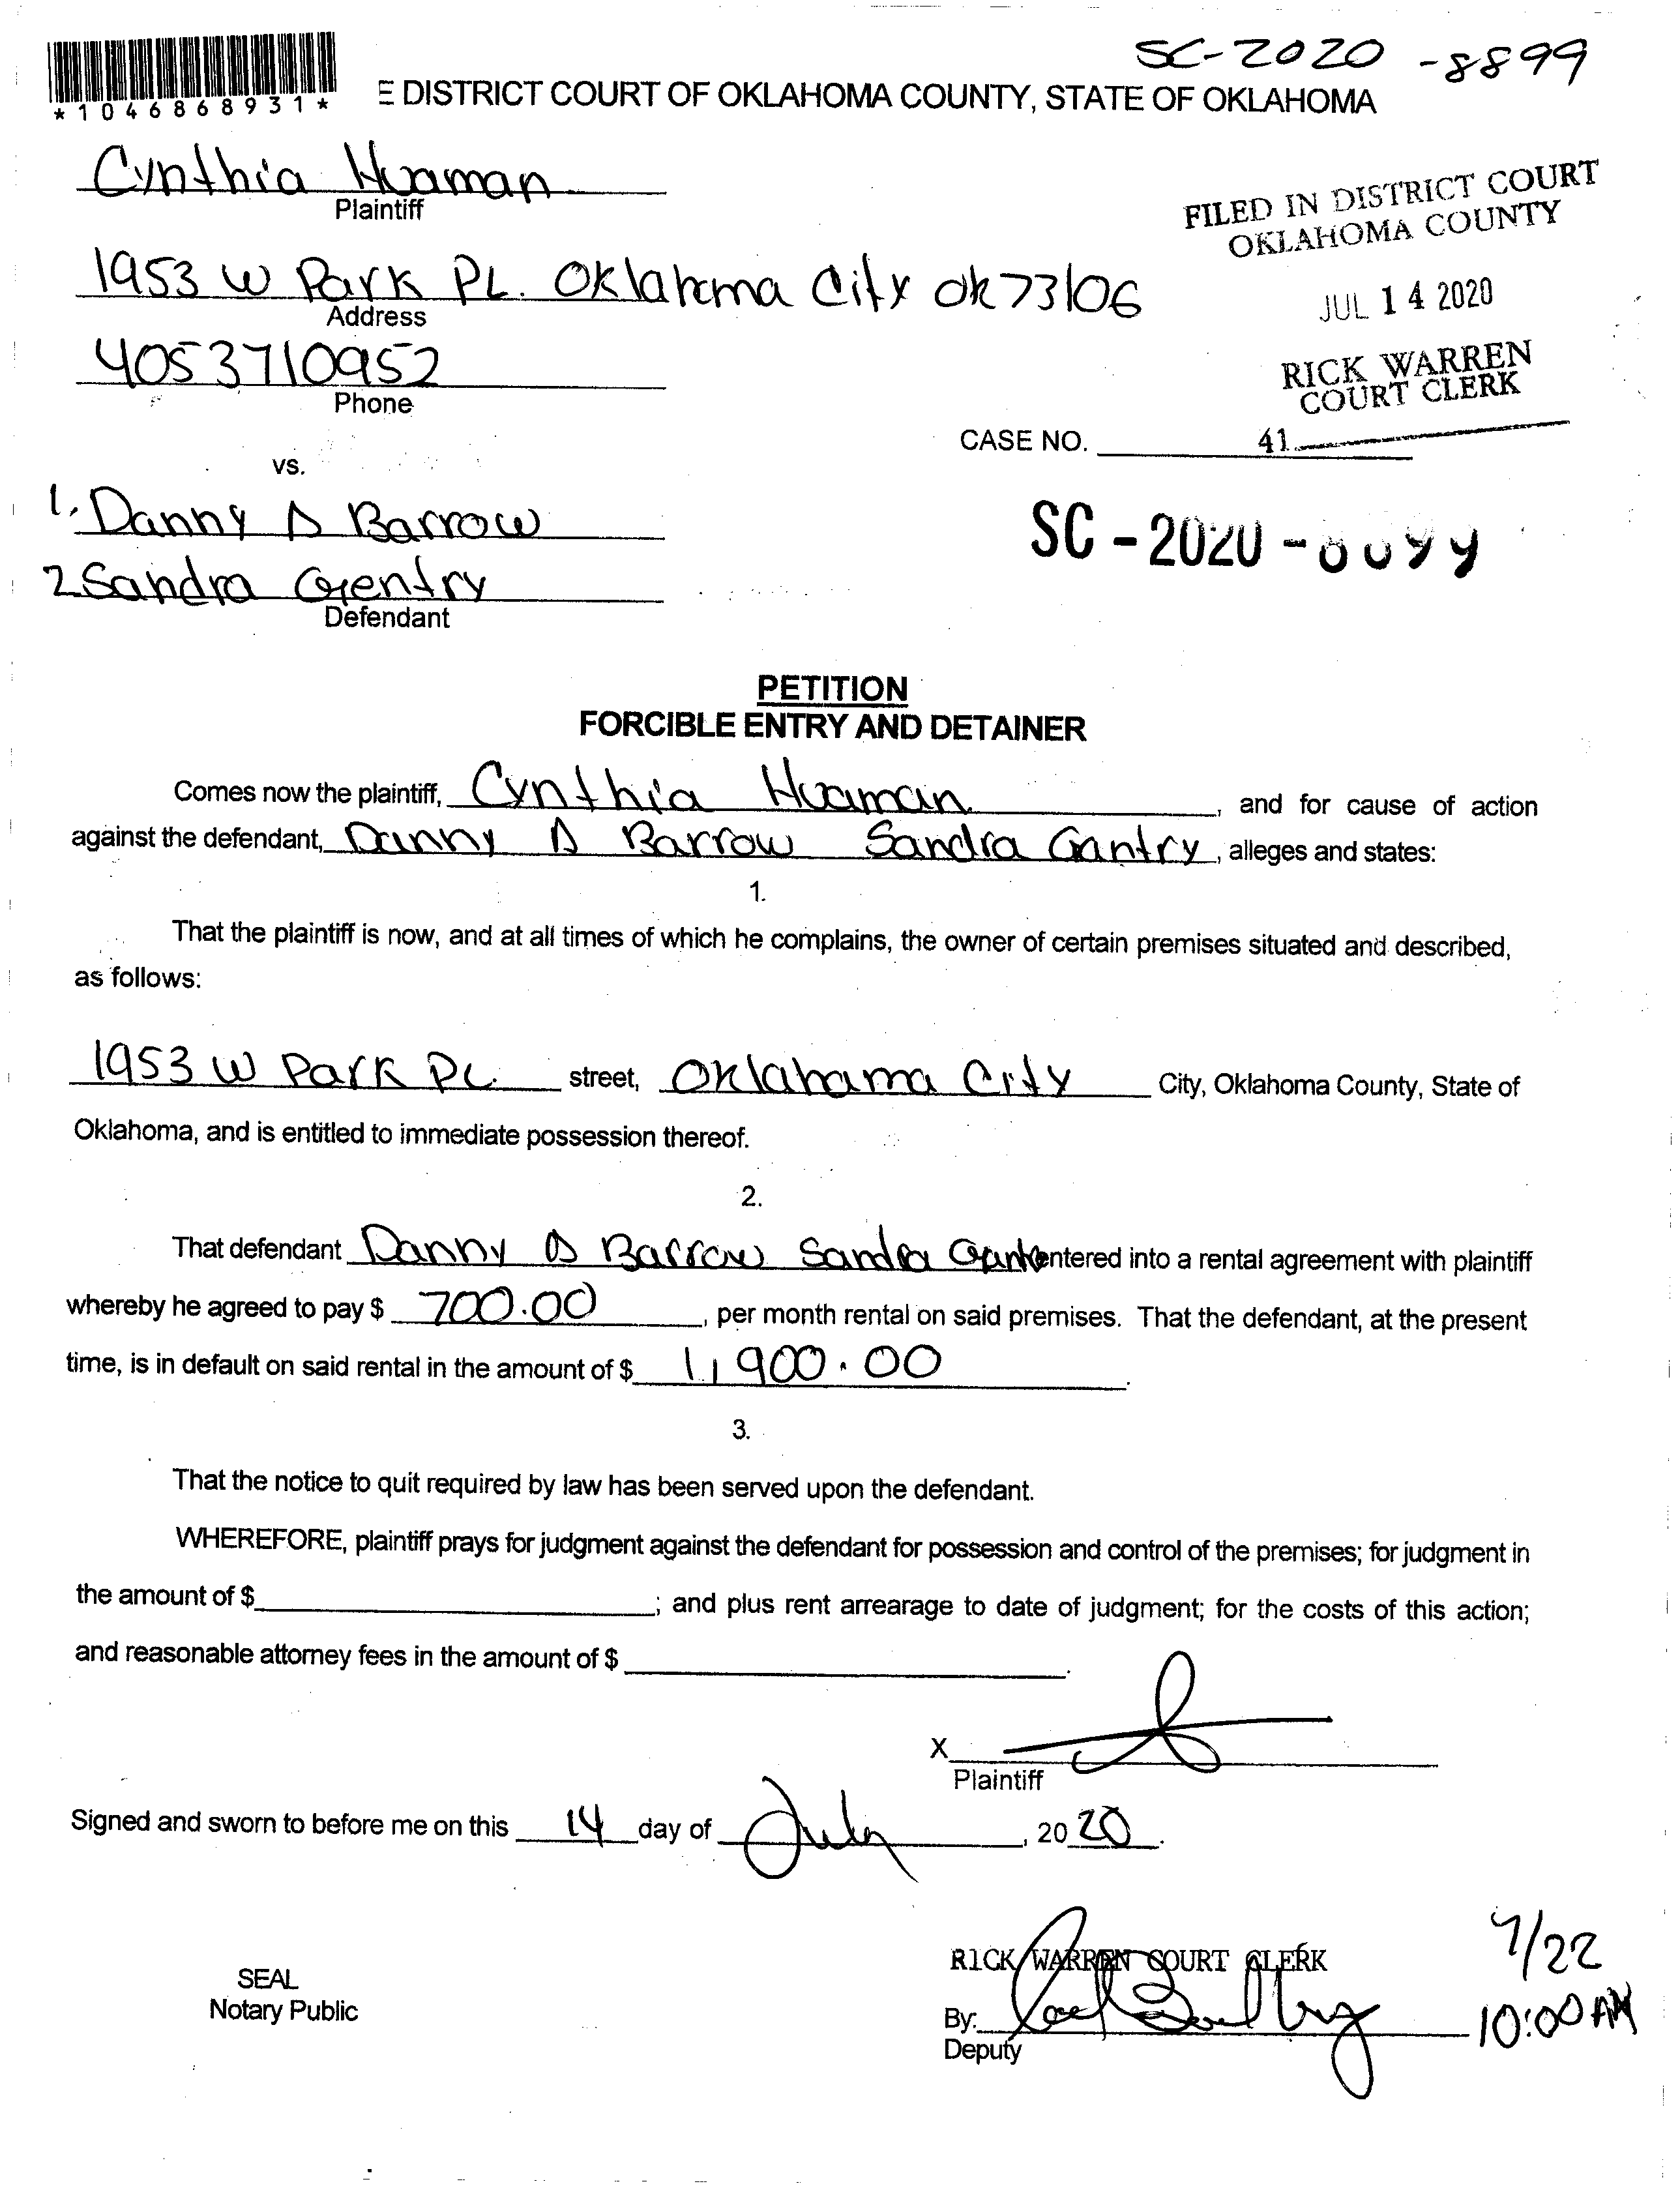 SC-2020-8899
*1046868931*
E DISTRICT COURT OF OKLAHOMA COUNTY, STATE OF OKLAHOMA
Cynthia Huaman
Plaintiff
FILED IN DISTRICT COURT
OKLAHOMA COUNTY
1953 W Park PL. Oklahoma City Ok 73106
Address
JUL 14 2020
4053710952
Phone
RICK WARREN
COURT CLERK
CASE NO. 41
vs.
1. Danny D Barrow
SC-2020-8899
2 Sandra Gentry
Defendant
PETITION
FORCIBLE ENTRY AND DETAINER
Comes now the plaintiff, Cynthia Huaman, and for cause of action
against the defendant, Danny D Barrow Sandra Gantry, alleges and states:
1.
That the plaintiff is now, and at all times of which he complains, the owner of certain premises situated and described,
as follows:
1953 W Park PL. street, Oklahama City City, Oklahoma County, State of
Oklahoma, and is entitled to immediate possession thereof.
2.
That defendant Danny D Barrow Sandra entered into a rental agreement with plaintiff
whereby he agreed to pay $ 700.00, per month rental on said premises. That the defendant, at the present
time, is in default on said rental in the amount of $ 1,900.00.
3.
That the notice to quit required by law has been served upon the defendant.
WHEREFORE, plaintiff prays for judgment against the defendant for possession and control of the premises; for judgment in
the amount of $ ; and plus rent arrearage to date of judgment; for the costs of this action;
and reasonable attorney fees in the amount of $ .
X
Plaintiff
Signed and sworn to before me on this 14 day of July, 2020.
RICK WARREN COURT CLERK
7/22
SEAL
Notary Public
By:
10:00 AM
Deputy